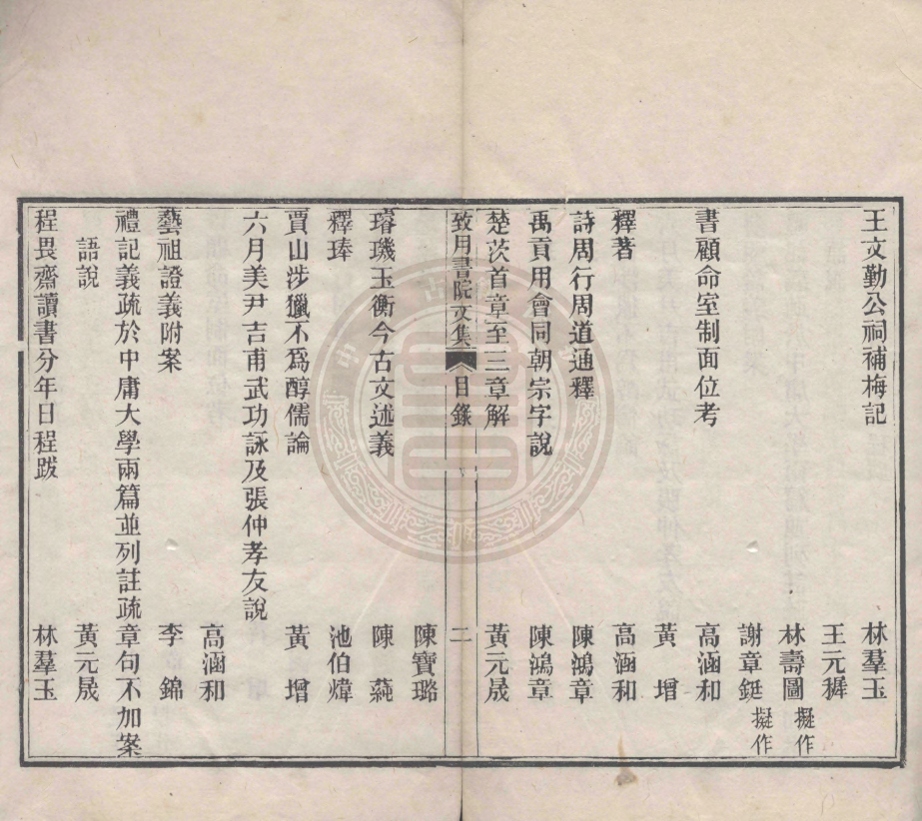 王文勤公祠補梅記 林羣玉
王元穉
林壽圖 擬作
謝章鋌 擬作
書顧命室制面位考 高涵和
黃增
釋著 高涵和
詩周行周道通釋 陳鴻章
禹貢用會同朝宗字說 陳鴻章
楚茨首章至三章解 黃元晟
致用書院文集 目錄 二
陳寶璐
璿璣玉衡今古文述義 陳蒓
釋琫 池伯煒
賈山涉獵不爲醇儒論 黃增
六月美尹吉甫武功詠及張仲孝友說
高涵和
藝祖證義附案 李錦
禮記義疏於中庸大學兩篇並列註疏章句不加案
語說 黃元晟
程畏齋讀書分年日程跋 林羣玉